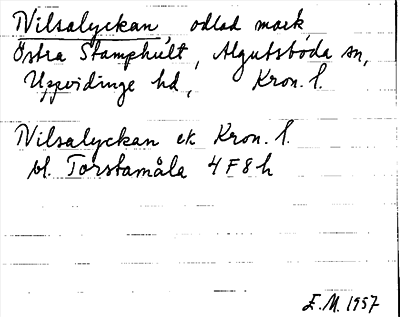 Nilsalyckan odlad mark
Östra Stamphult, Algutsboda sn,
Uppvidinge hd, Kron. l.
Nilsalyckan ek Kron. l.
bl. Torstamåla 4F8h
E.M. 1957